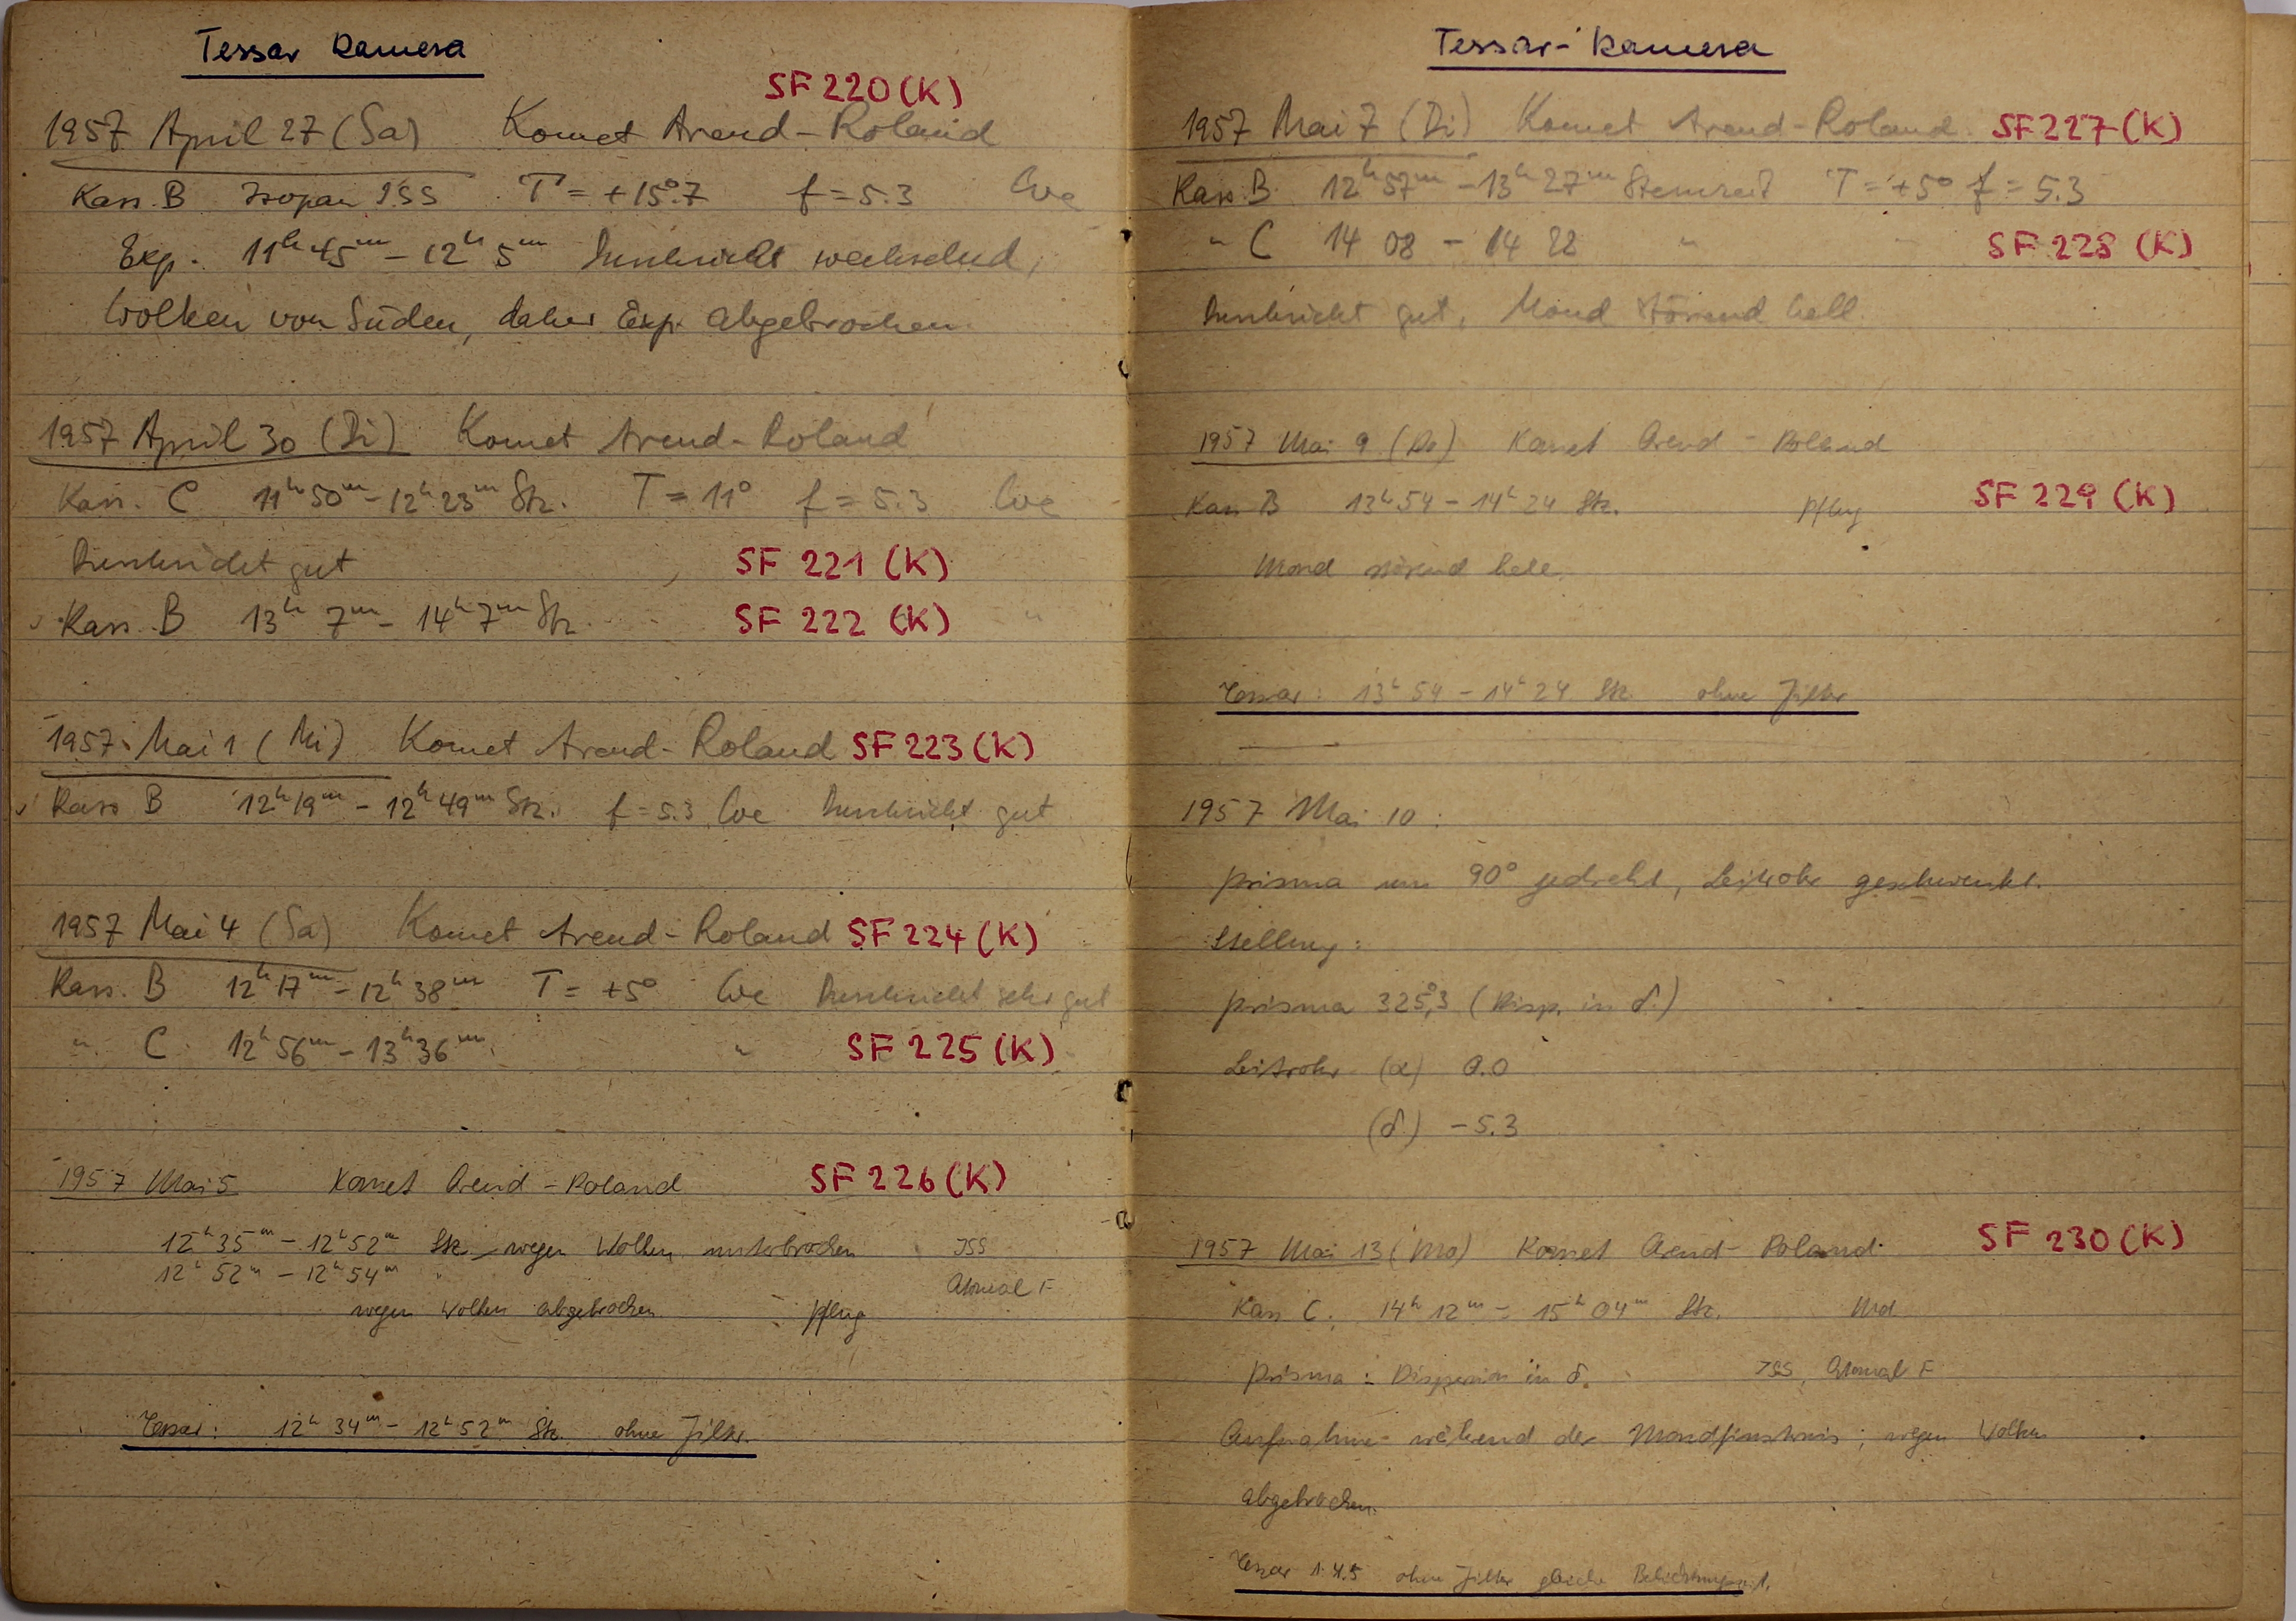 Tessar Kamera
SF 220 (K)
1957 April 27 (Sa) Komet Arend-Roland
Kass. B Isopan ISS T = +15°.7 f = 5.3 We
Exp. 11h 45m - 12h 5m Durchsicht wechselnd,
Wolken von Süden, daher Exp. abgebrochen.
1957 April 30 (Di) Komet Arend-Roland
Kass. C 11h 50m - 12h 23m Stz. T = 11° f = 5.3 We
Durchsicht gut SF 221 (K)
Kass. B 13h 7m - 14h 7m Stz. SF 222 (K) "
1957 Mai 1 (Mi) Komet Arend-Roland SF 223 (K)
Kass B 12h 19m - 12h 49m Stz. f = 5.3 We Durchsicht gut
1957 Mai 4 (Sa) Komet Arend-Roland SF 224 (K)
Kass. B 12h 17m - 12h 38m T = +5° We Durchsicht sehr gut
" C 12h 56m - 13h 36m " SF 225 (K)
1957 Mai 5 Komet Arend-Roland SF 226 (K)
12h 35m - 12h 52m Stz wegen Wolken unterbrochen ISS
12h 52m - 12h 54m " Atomal F
wegen Wolken abgebrochen Pflug
Tessar: 12h 34m - 12h 52m Stz. ohne Filter.
Tessar-Kamera
1957 Mai 7 (Di) Komet Arend-Roland SF 227 (K)
Kass B. 12h 57m - 13h 27m Sternzeit T = +5° f = 5.3
" C 14 08 - 14 22 " SF 228 (K)
Durchsicht gut, Mond störend hell.
1957 Mai 9 (Do) Komet Arend-Roland
Kass B 13h 54 - 14h 24 Stz. Pflug SF 229 (K)
Mond störend hell.
Tessar: 13h 54 - 14h 24 Stz. ohne Filter
1957 Mai 10:
Prisma um 90° gedreht, Leitrohr geschwenkt.
Stellung:
Prisma 325°,3 (Disp. in δ.)
Leitrohr (α) 0.0
(δ) -5.3
1957 Mai 13 (Mo) Komet Arend-Roland SF 230 (K)
Kass C. 14h 12m - 15h 04m Stz. Md
Prisma: Dispersion in δ. ISS, Atomal F
Aufnahme während der Mondfinsternis; wegen Wolken
abgebrochen.
Tessar 1:4.5 ohne Filter gleiche